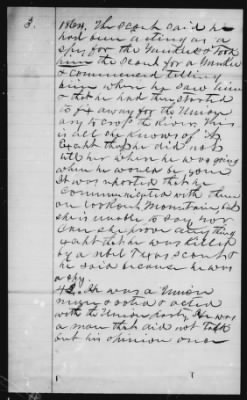 3. 1864. The scout said he
had been acting as a
spy for the Yankees & took
him the scout for a Yankee
& commenced telling
him where he saw him
& that he had then started
to fix away for the Union
army to cross the River. This
is all she knows of it
Except that he did not
tell her when he was going
when he would be gone
It was reported that he
Communicated with them
on Lookout Mountain but
she is unable to say nor
Can she prove any thing
except that he was killed
by a rebel Texas scout &
he said because he was
a spy.
42. He was a Union
man & voted & acted
with the Union party. He was
a man that did not talk
out his opinion once